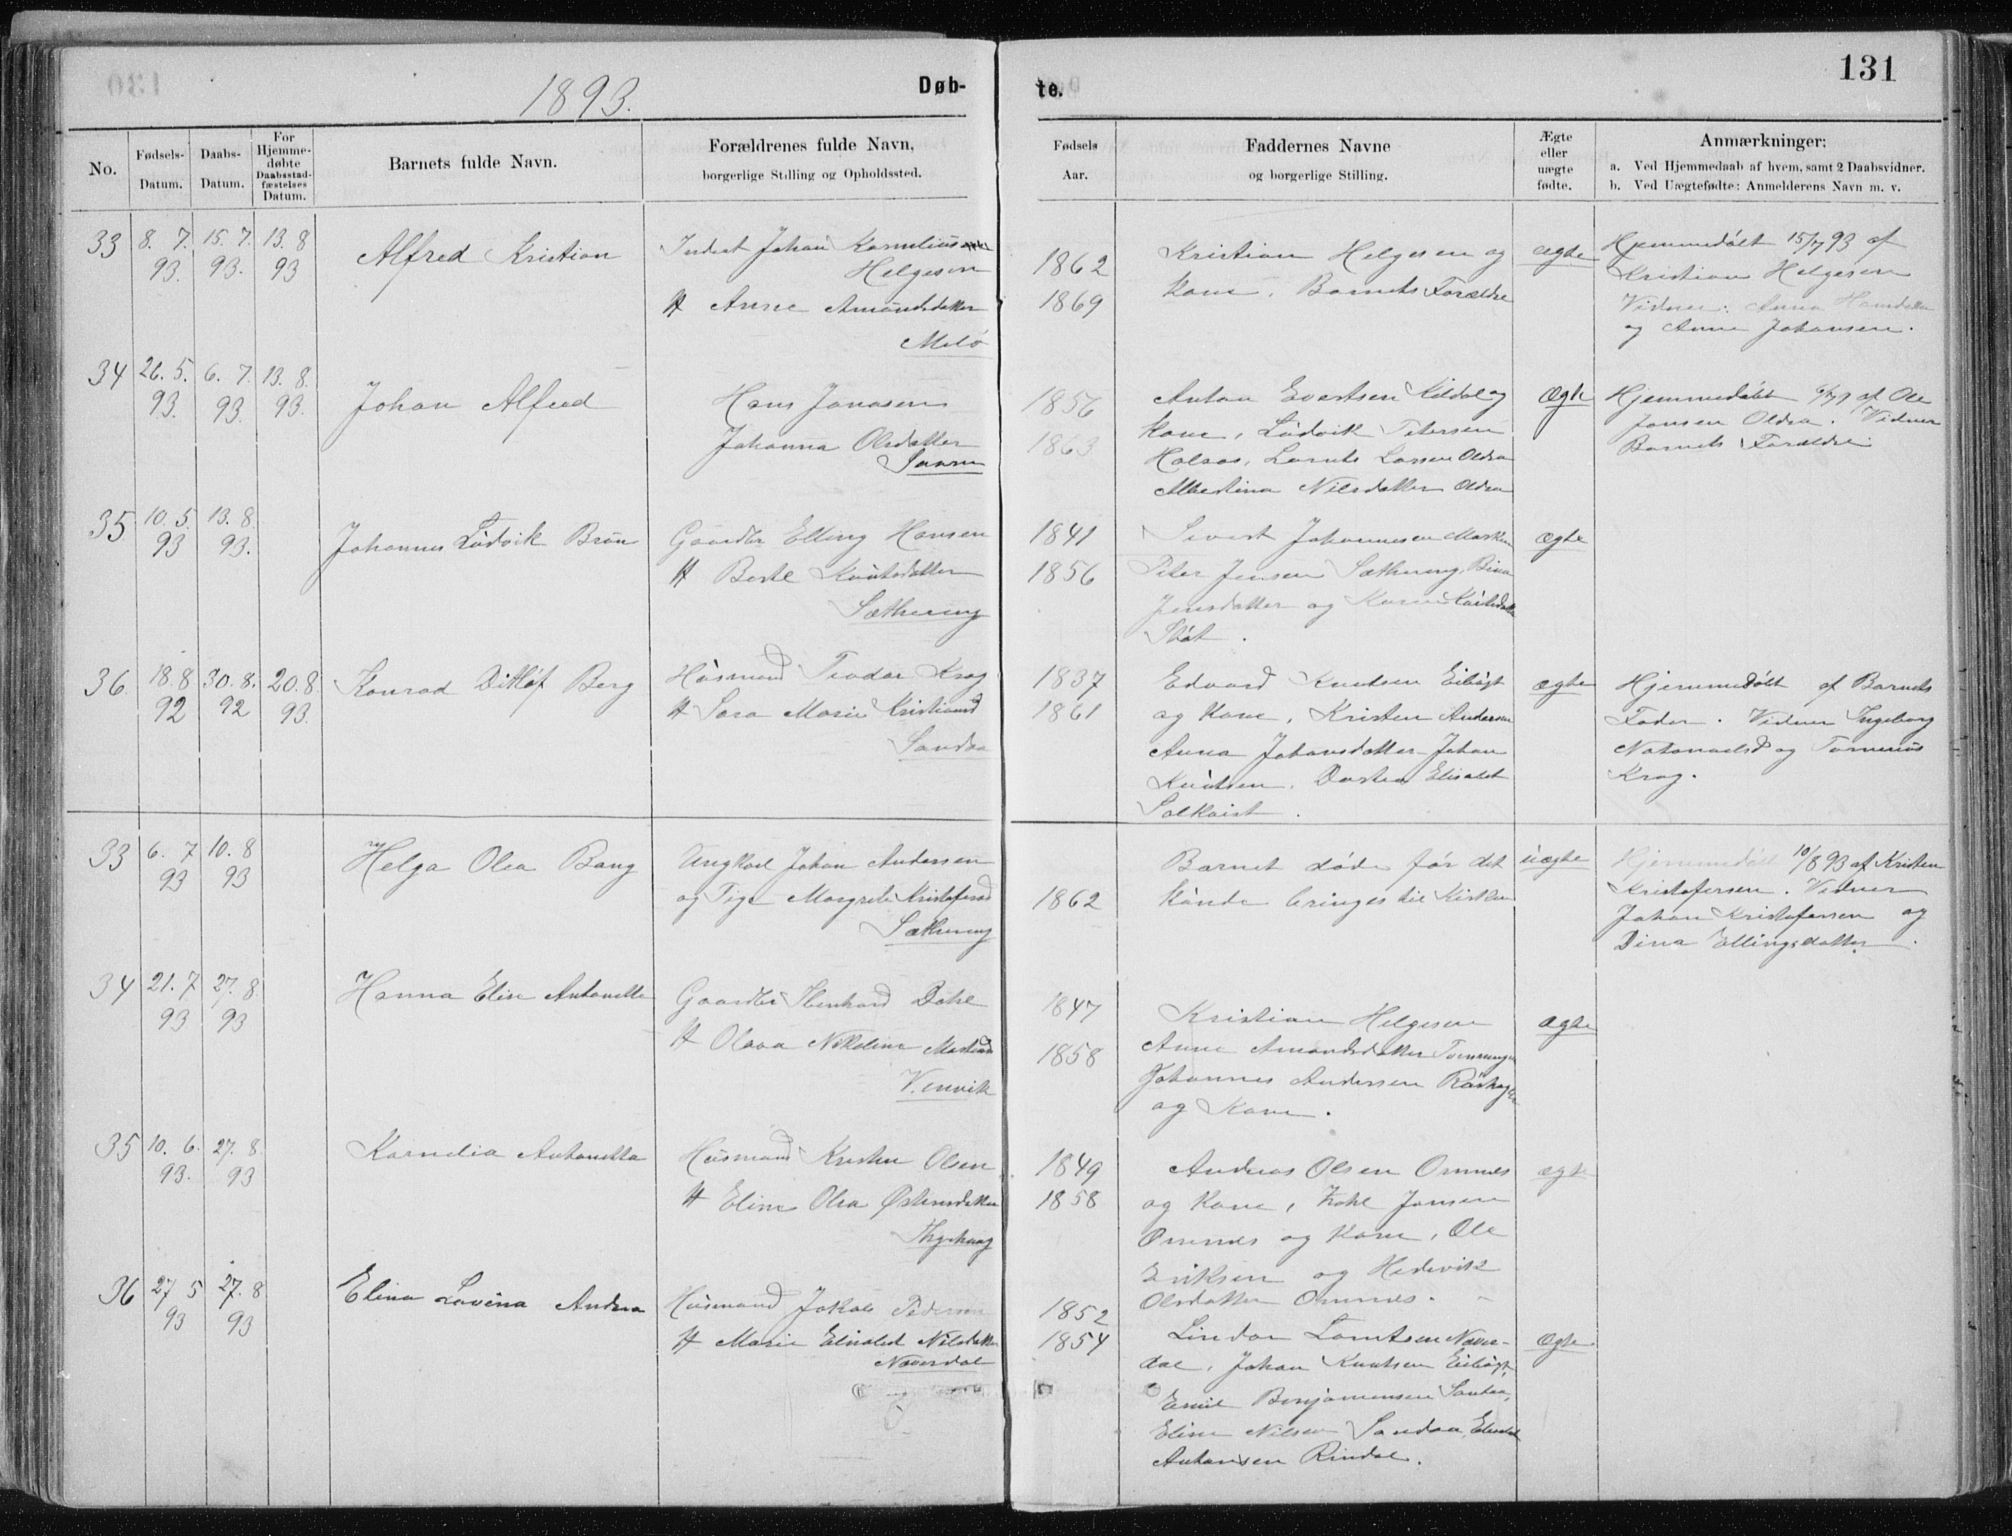 1893.
Døb-
No.
Fødsels-
Datum.
Daabs-
Datum.
For
Hjemme-
døbte
Daabsstad-
fæstelses
Datum.
Barnets fulde Navn.
Forældrenes fulde Navn,
borgerlige Stilling og Opholdssted.
33 8. 7. 15. 7. 13. 8
93. 93. 93
Alfred Kristian
Inderst Johan Kornelius
Helgesen
H Anne Amundsdatter
Melø
34 26. 5. 6. 7. 13. 8.
93. 93. 93.
Johan Alfred
Hans Jonasen
Johanna Olsdatter
35 10. 5. 13. 8.
93 93.
Johannes Lüdvik Brün
Gaardbr Elling Hansen
H Berte Knütsdatter
Sætherung
36 18. 8 30. 8. 20. 8.
92 92 93.
Konrad Ditløf Berg
Hüsmand Teodor Krog
H Sara Marie Kristiansd
Sandaa
33 6. 7 10. 8
93 93
Helga Olea Bang
Ungkarl Johan Andersen
og Pige Margrete Kristofersd
Sætherung
34 21. 7 27. 8.
93 93
Hanna Elise Antonetta
Gaardbr Dahl
H Olava Nikoline
Venvik
35 10. 6. 27. 8.
93. 93
Kornelia Antonetta
Hüsmand Kristen Olsen
H Eline Olea Østensdatter
36 27 5 27. 8
93 93
Elina Lovina Andrea
Hüsmand Jakob Pedersen
H Marie Elisabet Nilsdatter
Næverdal
131
te.
Fødsels
Aar.
Faddernes Navne
og borgerlige Stilling.
Ægte
eller
uægte
fødte.
Anmærkninger:
a. Ved Hjemmedaab af hvem, samt 2 Daabsvidner.
b. Ved Uægtefødte: Anmelderens Navn m. v.
1862
1869
Kristian Helgesen og
Kone, Barnets Forældre
ægte
Hjemmedøbt 15/7 93 af
Kristian Helgesen
Vidner: Anna Hansdatter
og Anne Johansen.
1856
1863
Anton Evertsen Kildal og
Kone, Lüdvik Petersen
Holaas, Lorents Larsen Oldra
Albertina Nilsdatter Oldra
Ægte
Hjemmedøbt 6/7 93 af Ole
Jonsen Oldra. Vidner
Barnets Forældre
1841
1856
Sivert Johannesen
Peter Jensen Sætherung,
Jensdatter og Karen Knütsdatter
ægte
1837
1861
Edvard Knutsen Eibügt
og Kone, Kristen Andersen
Anna Johansdatter Johan
Knütsen, Dortea Elisabet
ægte
Hjemmedøbt af Barnets
Fader. Vidner Ingeborg
og
Krog.
1862
Barnet døde før det
künde bringes til Kirken
üægte
Hjemmedøbt 10/8 93 af Kristen
Kristofersen. Vidner
Johan Kristofersen og
Dina Ellingsdatter.
1847
1858
Kristian Helgesen
Anne Amundsdatter
Johannes Andersen
og Kone.
ægte
1849
1858
Andreas Olsen Ornnes
og Kone, Jonsen
Ornnes og Kone, Ole
Eriksen og Hedevik
Olsdatter Ornnes.
ægte
1852
1854
Lindor Lorntsen Næver-
dal, Johan Knutsen Eibügt,
Emil Benjaminsen Sandaa,
Eline Nilsen Sandaa,
Antonsen Rindal.
Ægte